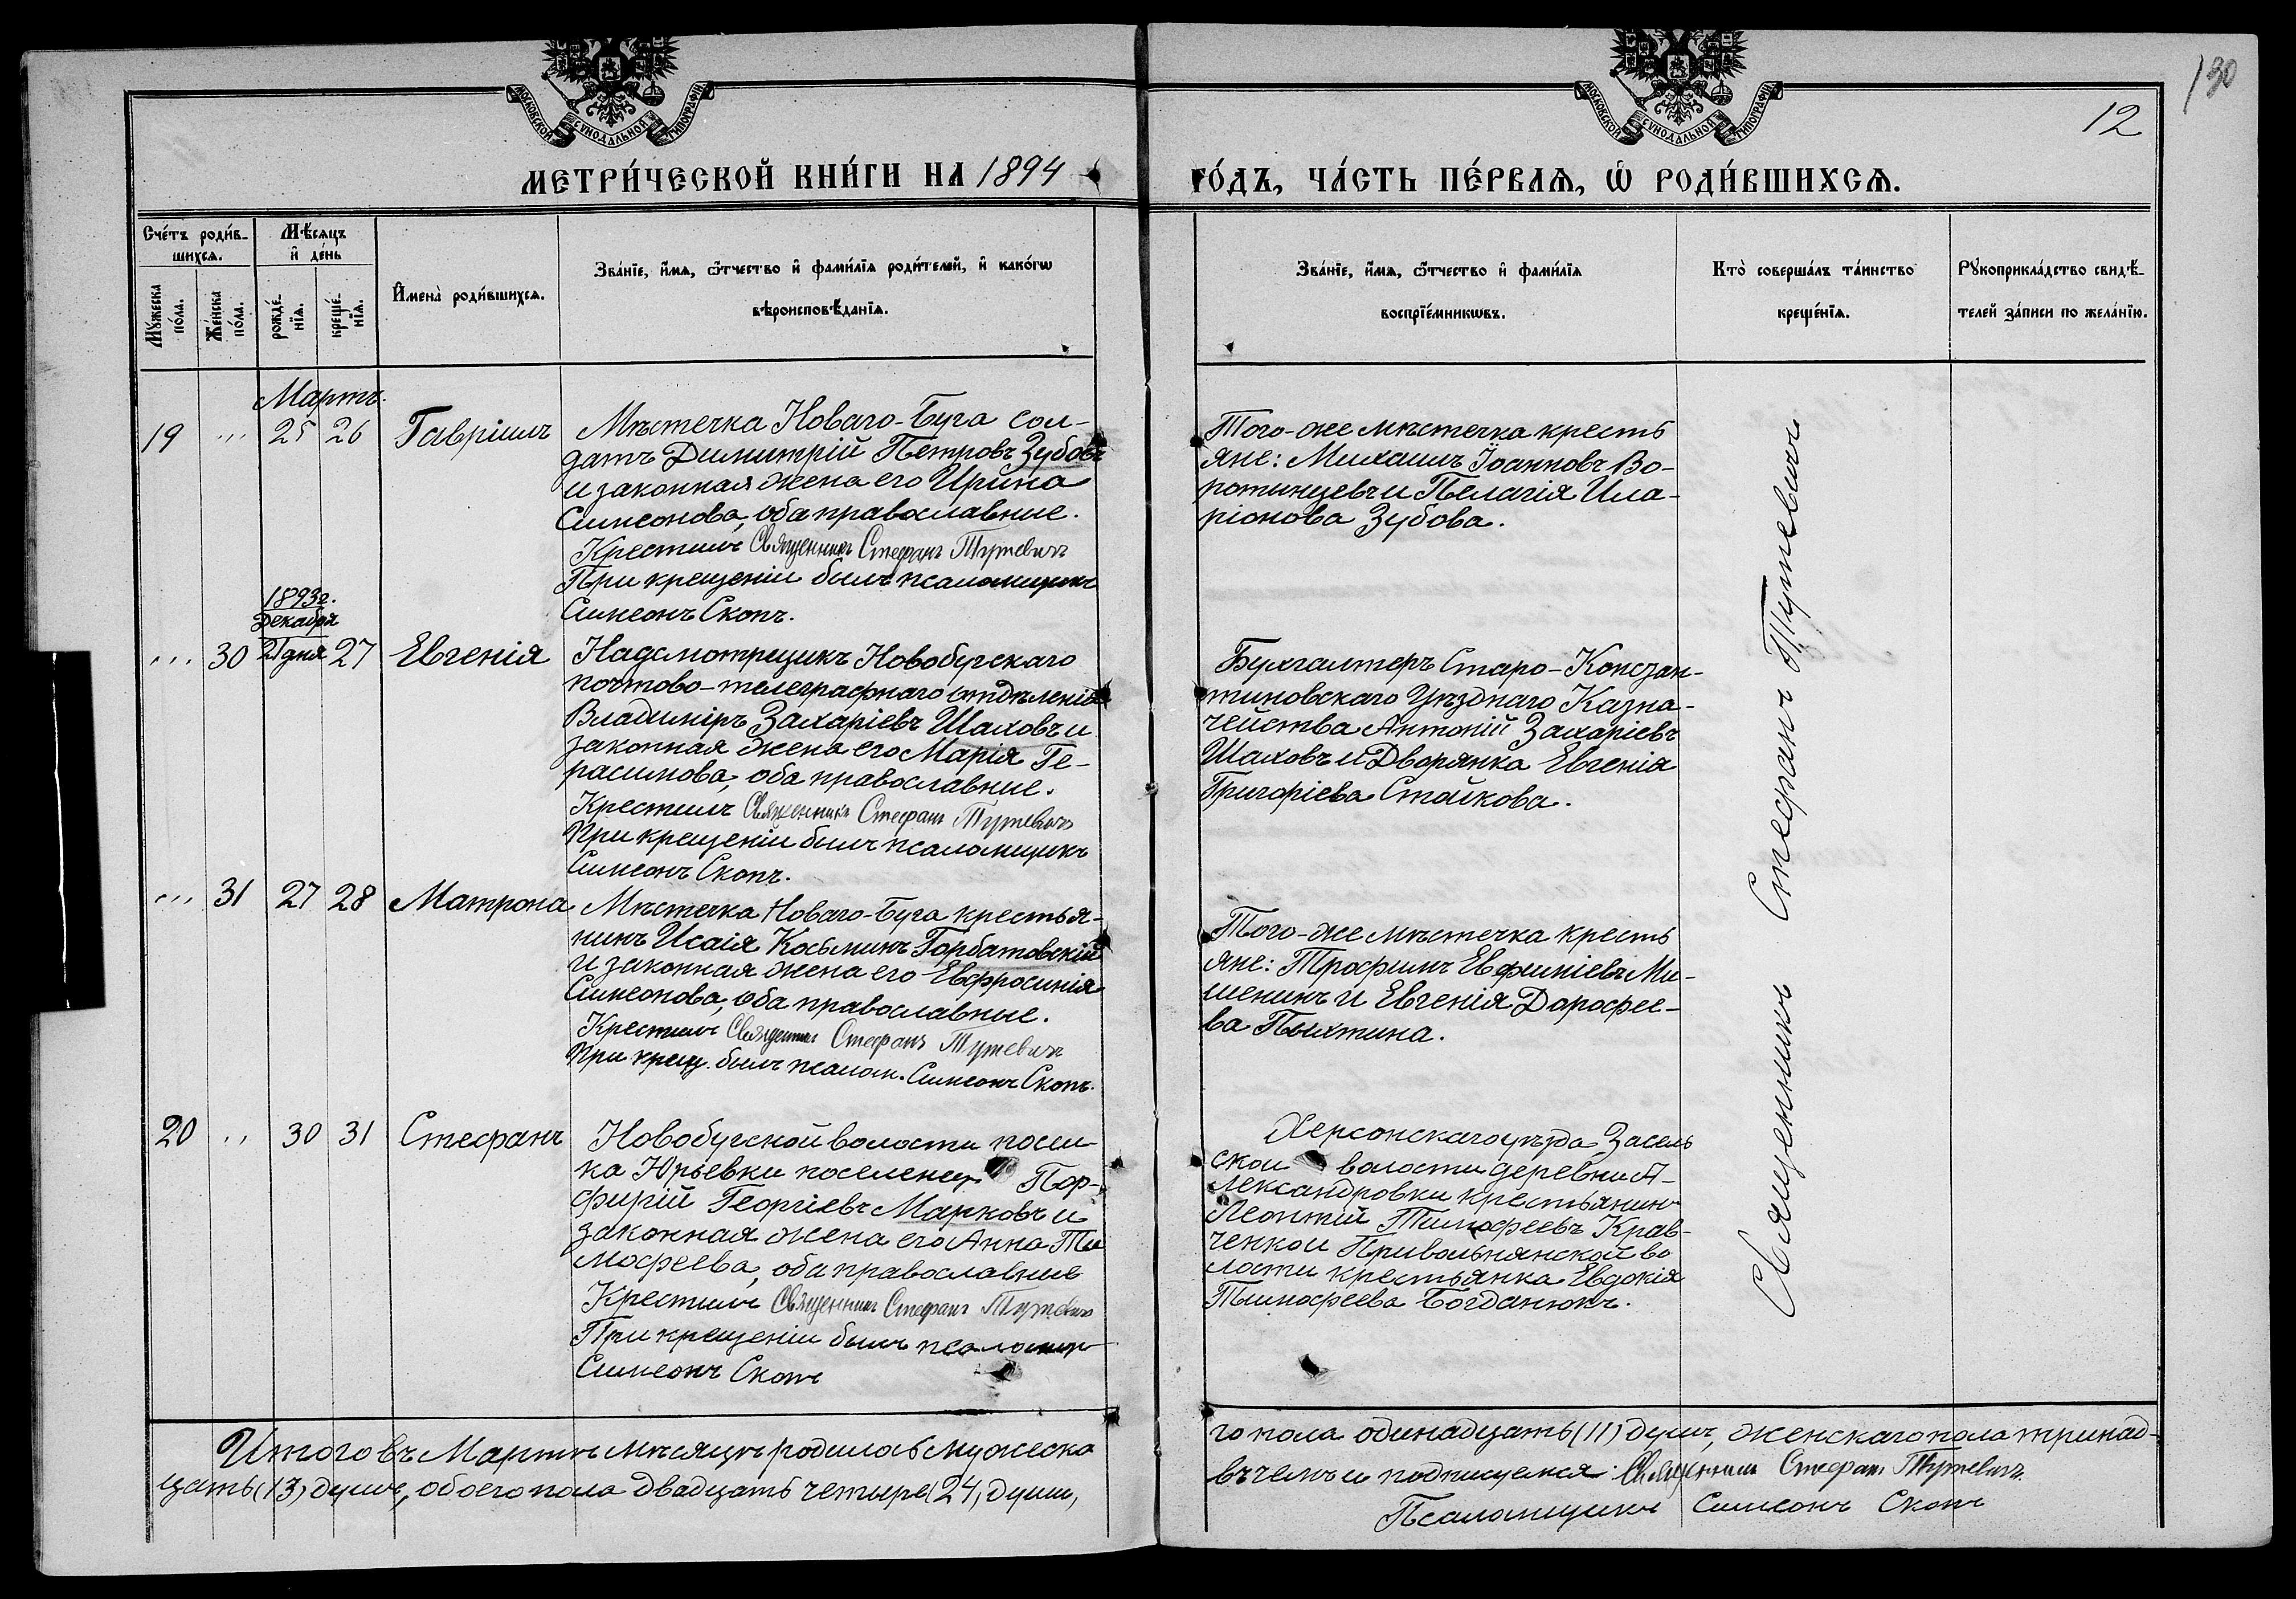 130
12
МОСКОВСКОЙ СѴНОДАЛЬНОЙ ТИПОГРАФІИ
МОСКОВСКОЙ СѴНОДАЛЬНОЙ ТИПОГРАФІИ
МЕТРИ́ЧЕСКОЙ КНИ́ГИ НА 1894
ГО́ДЪ, ЧА́СТЬ ПЕ́РВАѦ, Ѡ РОДИ́ВШИХСѦ.
Сче́тъ роди́в-
шихсѧ.
Мѣ́сѧцъ
и҆ де́нь
Мꙋ́жеска
по́ла.
Же́нска
по́ла.
рожде́-
нїѧ.
креще́-
нїѧ.
И҆мена̀ роди́вшихсѧ.
Зва́нїе, и҆́мѧ, ѻ҆́тчество и҆ фами́лїѧ роди́телей, и҆ како́гѡ
вѣроисповѣ́данїѧ.
Зва́нїе, и҆́мѧ, ѻ҆́тчество и҆ фами́лїѧ
воспрїе́мникѡвъ.
Кто̀ соверша́лъ та́инство
креще́нїѧ.
Рꙋкоприкла́дство свидѣ́-
телей за́писи по жела́нїю.
Мартъ.
19 ... 25 26 Гавріилъ
Мѣстечка Новаго-Буга сол-
датъ Димитрій Петровъ Зубовъ
и законная жена его Ирина
Симеонова, оба православные.
Крестилъ Священникъ Стефанъ Тутевичъ
При крещеніи былъ псаломщикъ
Симеонъ Скопъ.
Того-же мѣстечка кресть
яне: Михаилъ Іоанновъ Во-
ротынцевъ и Пелагія Ила-
ріонова Зубова.
1893г.
Декабря
... 30 21 дня 27 Евгенія
Надсмотрщикъ Новобугскаго
почтово-телеграфнаго отдѣленія
Владиміръ Захаріевъ Шаховъ и
законная жена его Марія Ге-
расимова, оба православные.
Крестилъ Священникъ Стефанъ Тутевичъ
При крещеніи былъ псаломщикъ
Симеонъ Скопъ.
Бухгалтеръ Старо-Констан-
тиновскаго Уѣзднаго Казна-
чейства Антоній Захаріевъ
Шаховъ и Дворянка Евгенія
Григоріева Стайкова.
... 31 27 28 Матрона
Мѣстечка Новаго-Буга крестья-
нинъ Исаія Косьминъ Горбатовскій
и законная жена его Евфросинія
Симеонова, оба православные.
Крестилъ Священникъ Стефанъ Тутевичъ
При крещ. былъ псалом. Симеонъ Скопъ.
Того-же мѣстечка кресть
яне: Трофимъ Евфиміевъ Ми-
шенинъ и Евгенія Дорофее-
ва Пыхтина.
20 .. 30 31 Стефанъ
Новобугской волости посел-
ка Юрьевки поселенец Пор-
фирій Георгіевъ Марковъ и
законная жена его Анна Ти
мофеева, оба православные
Крестилъ Священникъ Стефанъ Тутевичъ
При крещеніи былъ псаломщ
Симеонъ Скопъ
Херсонскаго уѣзда, Засель
ской волости деревни А-
лександровки крестьянинъ
Леонтій Тимофеевъ Крав-
ченко и Привольнянской во
лости крестьянка Евдокія
Тимофеева Богданюкъ.
Священникъ Стефанъ Тутевичъ
Итого въ Мартѣ мѣсяцѣ родилось мужеска
го пола одинадцать (11) душъ, женскаго пола тринад-
цать (13) душъ, обоего пола двадцать четыре (24) души,
въ чемъ и подписуемся: Священникъ Стефанъ Тутевичъ
Псаломщикъ Симеонъ Скопъ